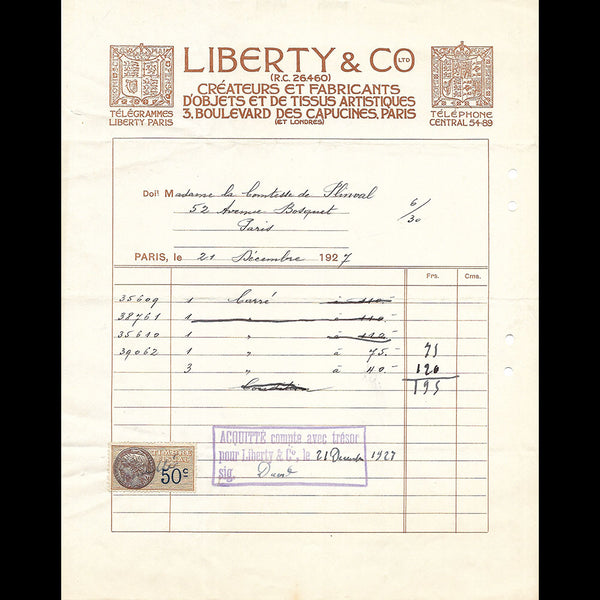 LIBERTY & CO LTD
(R.C. 26460)
CRÉATEURS ET FABRICANTS
D'OBJETS ET DE TISSUS ARTISTIQUES
3, BOULEVARD DES CAPUCINES, PARIS
(ET LONDRES)
TÉLÉGRAMMES
LIBERTY PARIS
TÉLÉPHONE
CENTRAL 54-89
Doit Madame la Comtesse de
52 Avenue Bosquet
Paris
6/30
PARIS, le 21 Décembre 1927
Frs. Cms.
35609 1 Carré à 110.-
38761 1 " à 110.-
35610 1 " à 110.-
39062 1 " à 75.- 75
3 " à 40.- 120
195
ACQUITTÉ compte avec trésor
pour Liberty & Co, le 21 Décembre 1927
sig.
50c